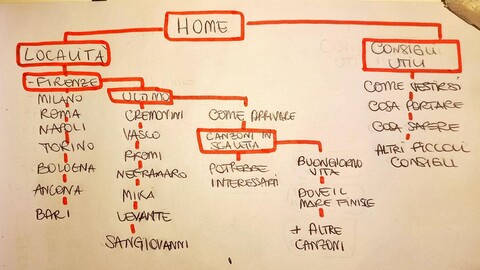 HOME
LOCALITÀ
- FIRENZE
MILANO
ROMA
NAPOLI
TORINO
BOLOGNA
ANCONA
BARI
ULTIMO
CREMONINI
VASCO
RKOMI
NEGRAMARO
MIKA
LEVANTE
SANGIOVANNI
COME ARRIVARE
CANZONI IN
SCALETTA
POTREBBE
INTERESSARTI
BUONGIORNO
VITA
DOVE IL
MARE FINISCE
+ ALTRE
CANZONI
CONSIGLI
UTILI
COME VESTIRSI
COSA PORTARE
COSA SAPERE
ALTRI PICCOLI
CONSIGLI